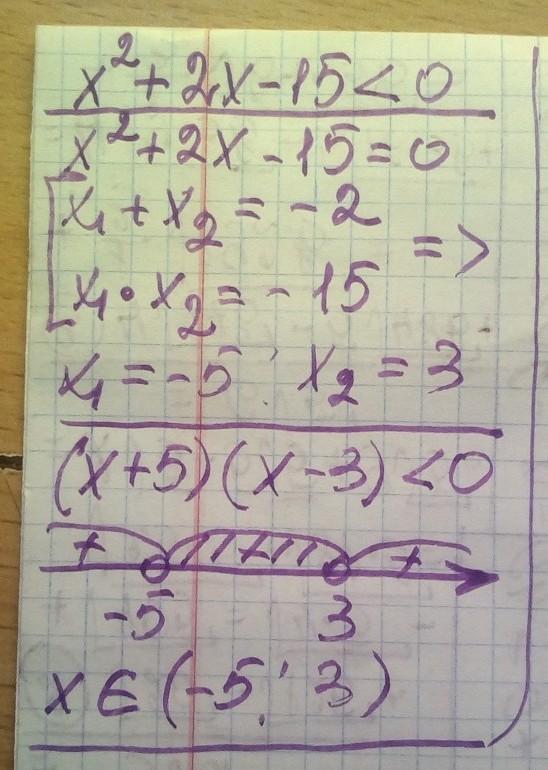 x² + 2x - 15 < 0
x² + 2x - 15 = 0
[ x₁ + x₂ = -2
x₁ • x₂ = -15 =>
x₁ = -5; x₂ = 3
(x+5)(x-3) < 0
+ +
-5 3
x ∈ (-5; 3)